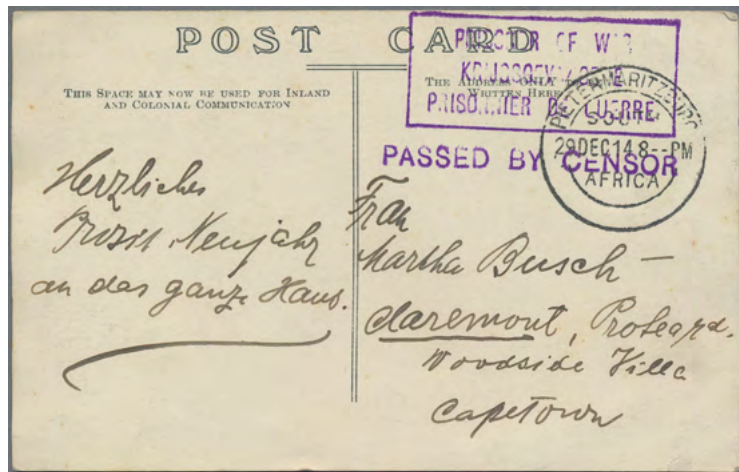 POST CARD
THIS SPACE MAY NOW BE USED FOR INLAND
AND COLONIAL COMMUNICATION
THE ADDRESS ONLY
WRITTEN HERE
PRISONER OF WAR
PRISONNIER DE GUERRE
PASSED BY CENSOR
PIETERMARITZBURG
SOUTH
29 DEC 14 8--PM
AFRICA
Herzliches
Prosit Neujahr
an das ganze Haus.
Frau
Martha Busch —
Claremont, Protea rd.
Woodside Villa
Capetown